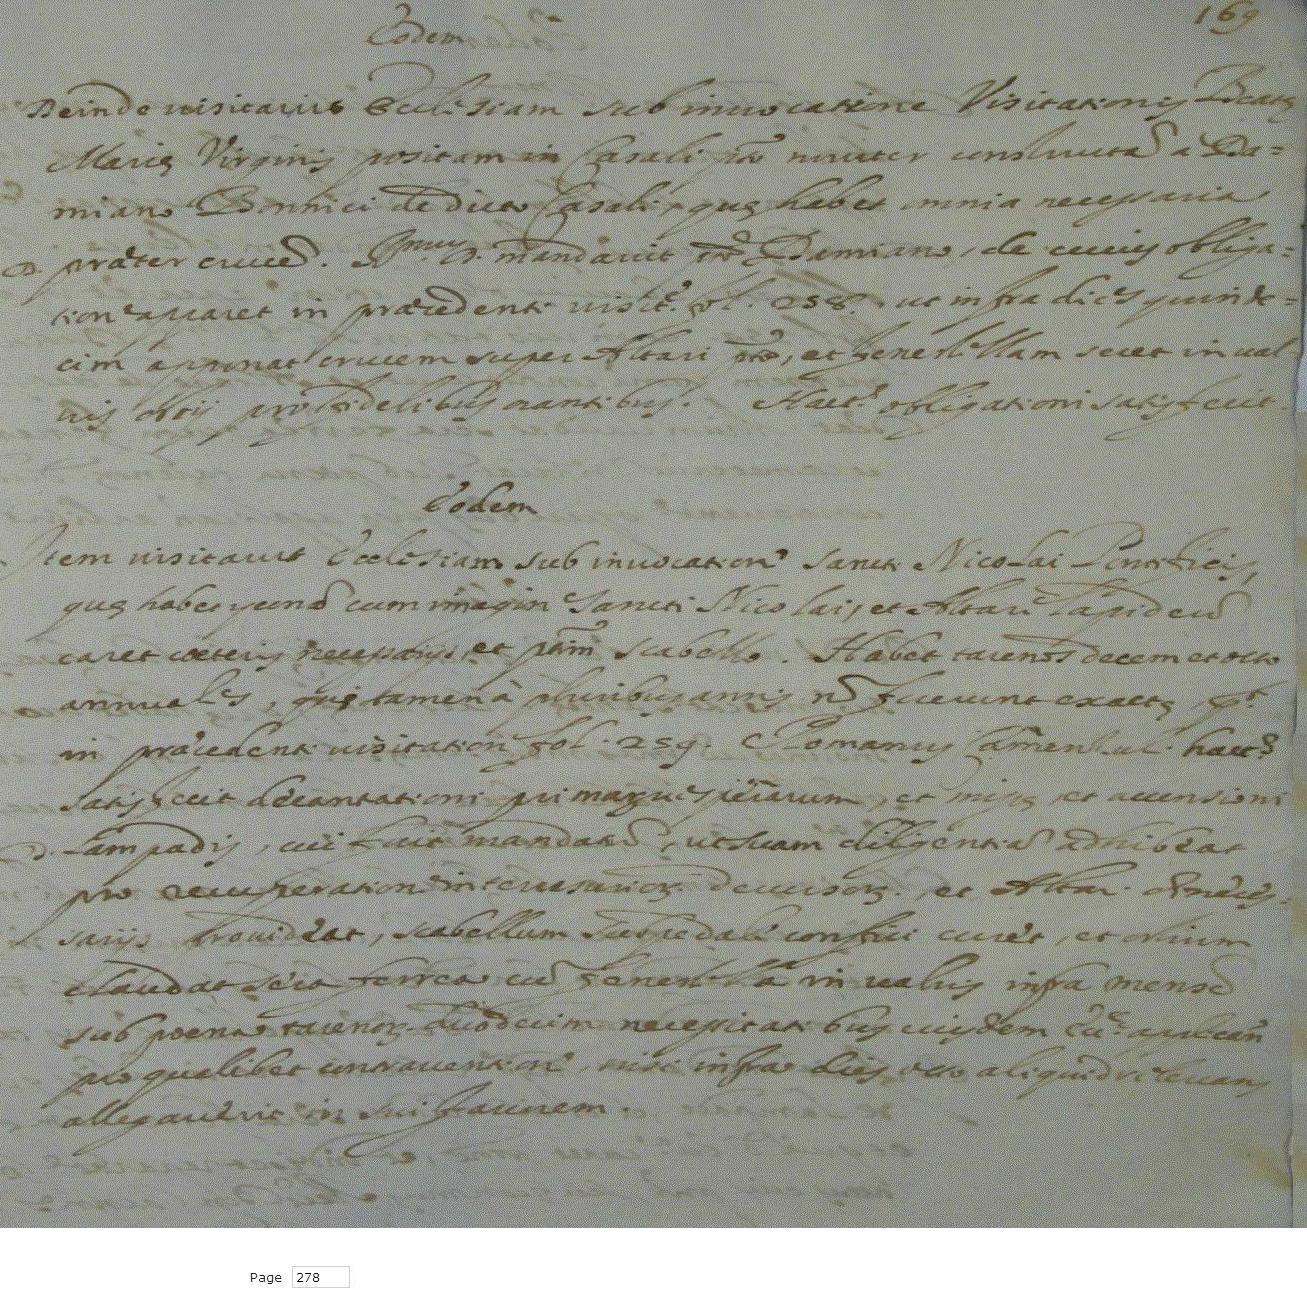 169
Eodem
Deinde visitavit Ecclesiam sub invocatione Visitationis Beatę
Marię Virginis positam in Casali pto noviter constructā a Da=
miano Bonnici de dicto Casali, quę habet omnia necessaria
præter crucē. Illmus D. mandavit dto Damiano, de cuius obliga=
tione apparet in præcedenti visit.e fol. 258. ut infra dies quinde=
cim apponat crucem super Altari pto, et fenestellam secet in val
vis ostij pro fidelibus orantibus. Hact.s obligationi satisfecit.
Eodem
Item visitavit Ecclesiam sub invocatione Sancti Nicolai Pontificis,
quę habet yconā cum imagine Sancti Nicolai, et Altare lapideū
caret cæteris necessarijs, et ptim scabello. Habet tarenos decem et octo
annuales, qui tamen à pluribus annis nō fuerunt exacti, pt
in præcedenti visitatione fol. 259. Romanus hact.s
satisfecit decantationi primarum, et missę, et accensioni
D. Lampadis, cui fuit mandatū, ut suam diligentiā adhibeat
pro recuperatione decursorę, et Altari
sarijs provideat, scabellum confici curet, et ostium
claudat sera ferrea cū fenestella in valvis infra mensē
sub poena tarenorę duodecim necessitatibus eiusdem applican
pro qualibet contraventione, nisi infra dies octo aliquid relevans
allegaverit in sui favorem.
Page 278